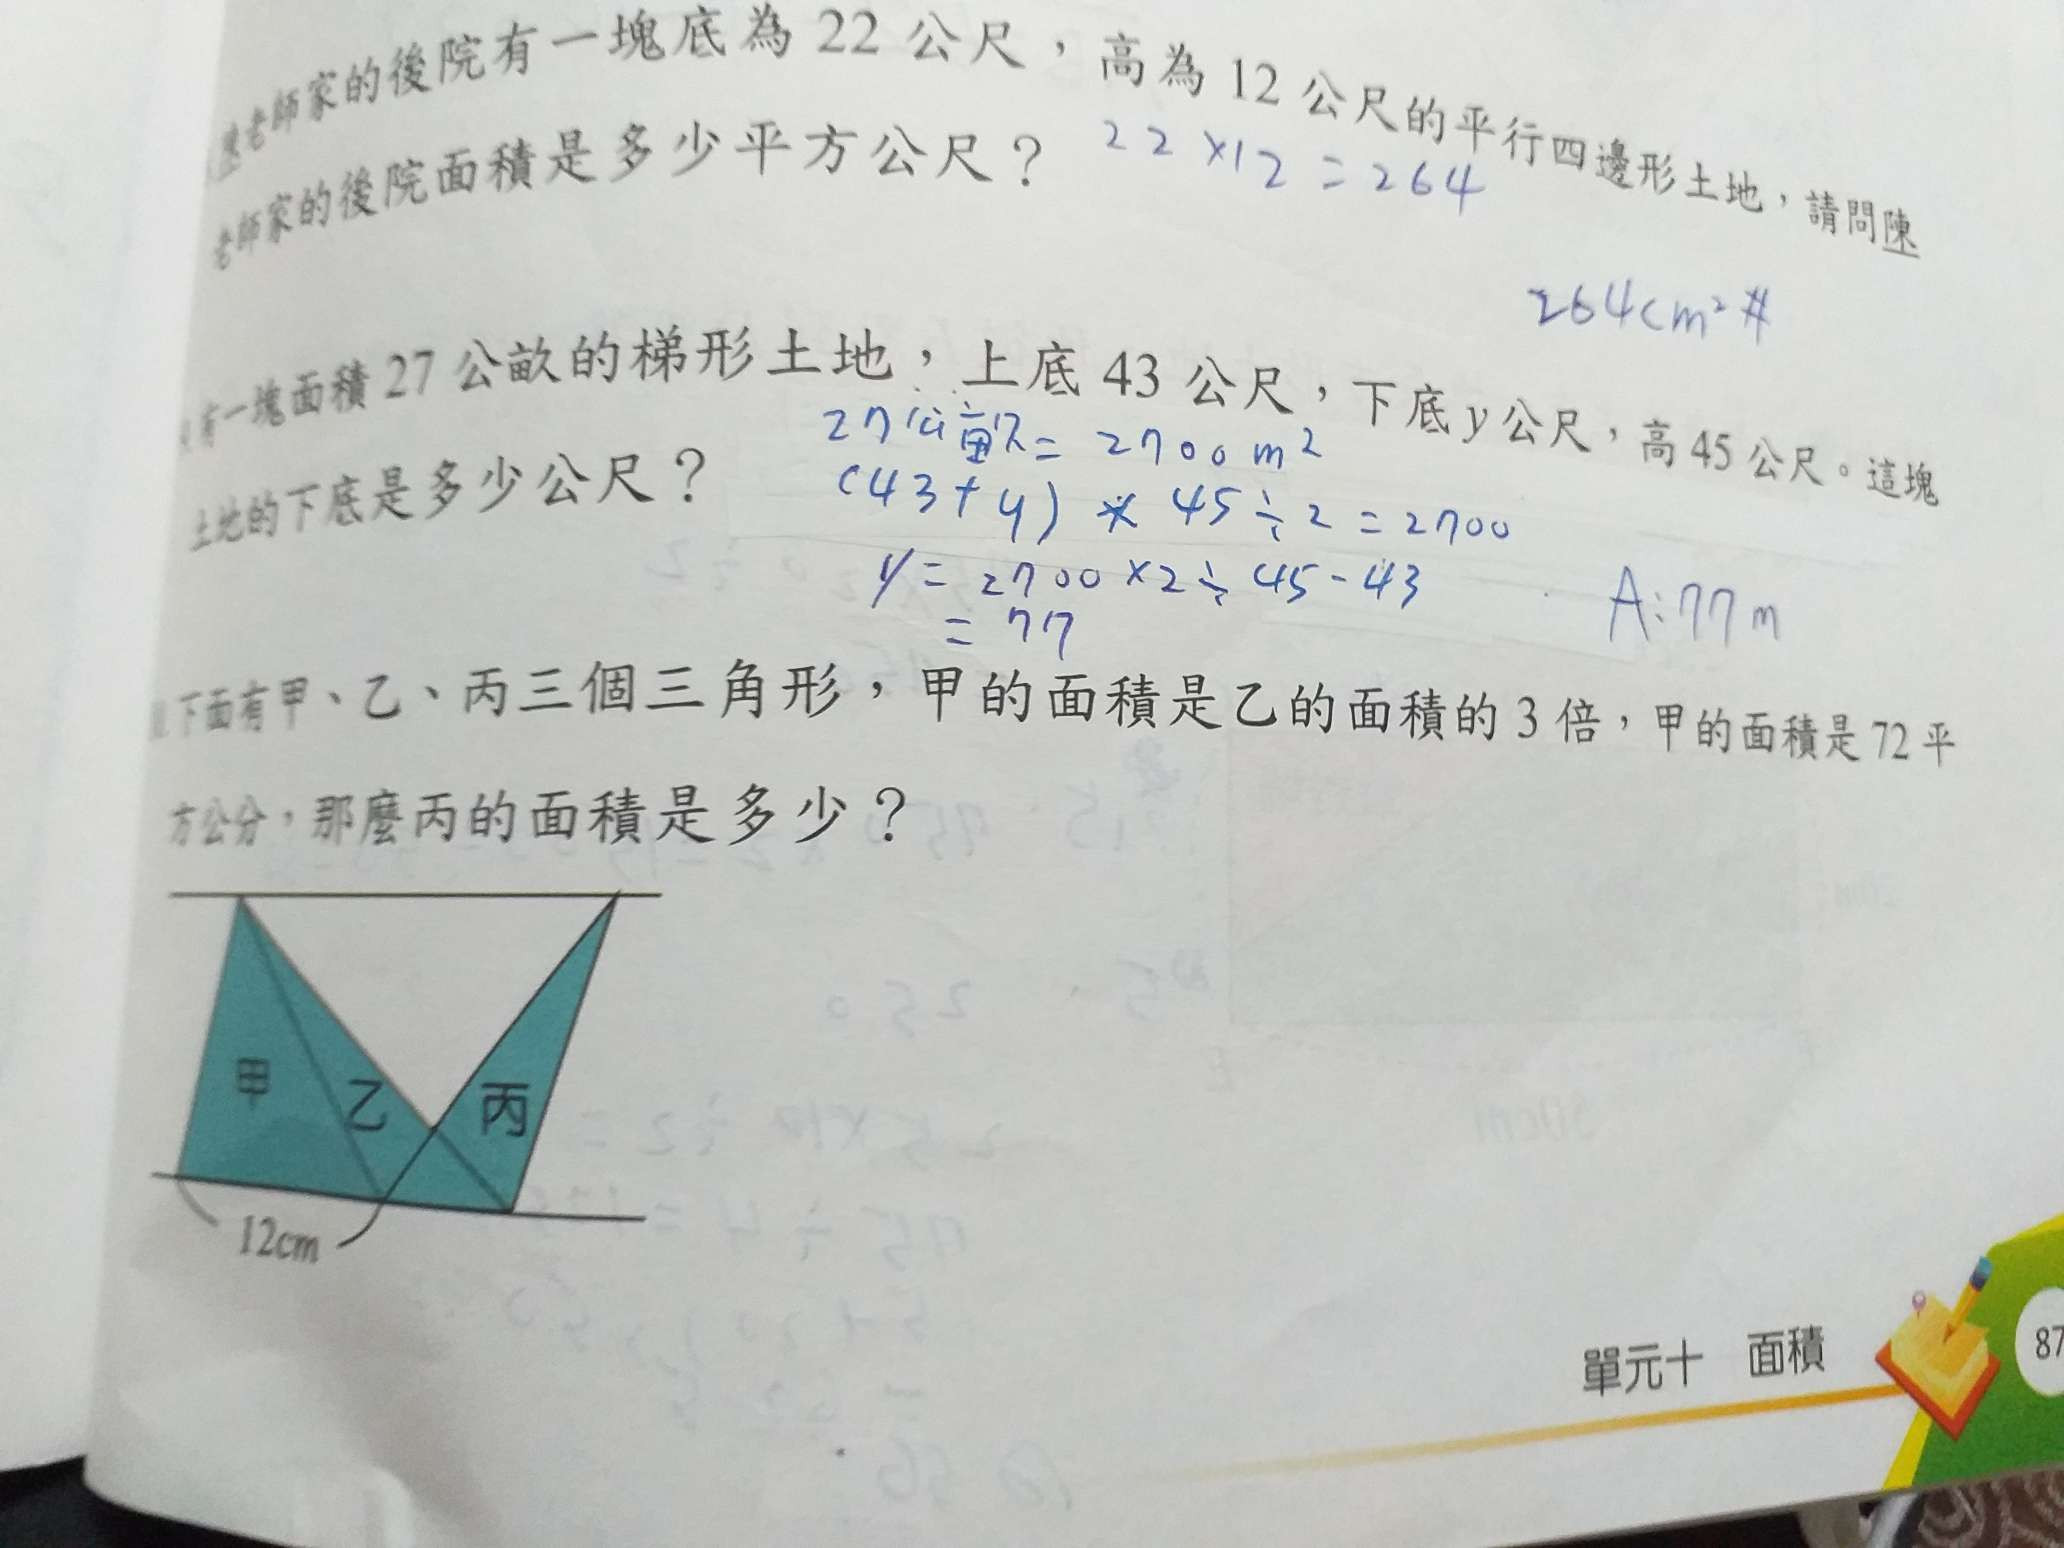 陳老師家的後院有一塊底為 22 公尺，高為 12 公尺的平行四邊形土地，請問陳
老師家的後院面積是多少平方公尺？
22×12=264
264cm²#
有一塊面積 27 公畝的梯形土地，上底 43 公尺，下底 y 公尺，高 45 公尺。這塊
土地的下底是多少公尺？
27公畝=2700m²
(43+y)×45÷2=2700
y=2700×2÷45-43
=77
A:77m
下面有甲、乙、丙三個三角形，甲的面積是乙的面積的 3 倍，甲的面積是 72 平
方公分，那麼丙的面積是多少？
甲
乙
丙
12cm
單元十 面積
87